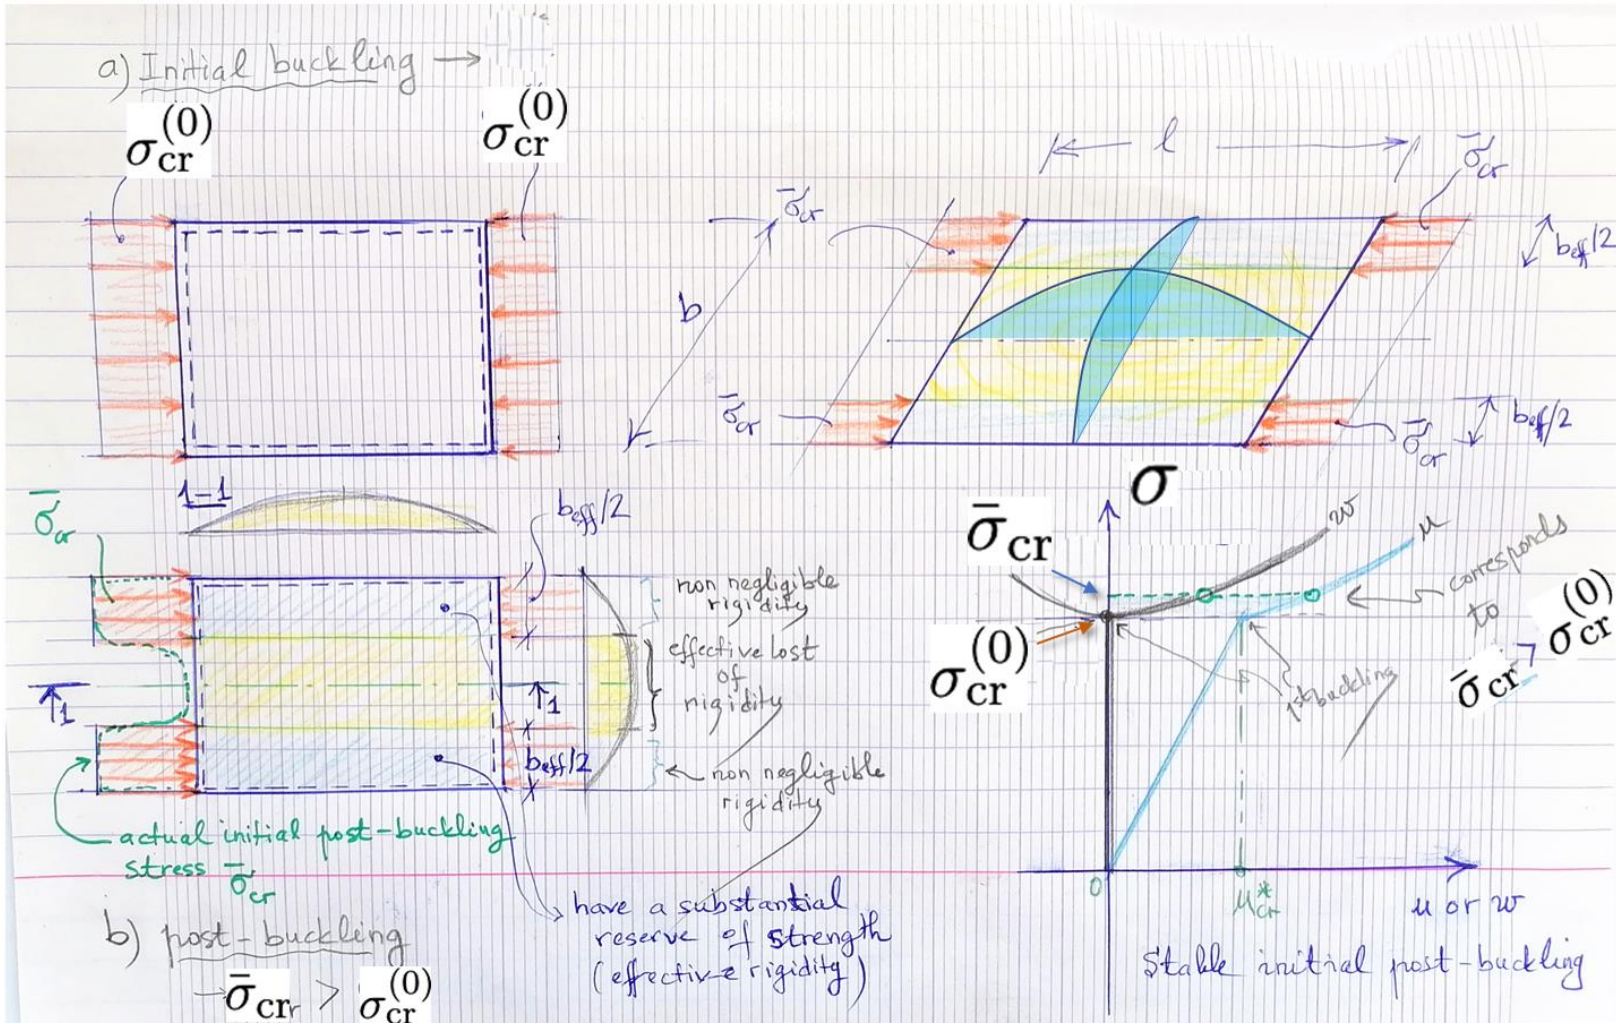 a) Initial buckling →
σcr^(0)
σcr^(0)
l
σ̄cr
σ̄cr
beff/2
b
σ̄cr
beff/2
σ̄cr
1-1
beff/2
σ̄cr
non negligible
rigidity
effective lost
of
rigidity
1
1
beff/2
non negligible
rigidity
actual initial post-buckling
stress σ̄cr
have a substantial
reserve of strength
(effective rigidity)
b) post-buckling
→ σ̄cr > σcr^(0)
σ
w
u
σ̄cr
σcr^(0)
corresponds
to
σ̄cr > σcr^(0)
1st buckling
0
u*cr
u or w
Stable initial post-buckling